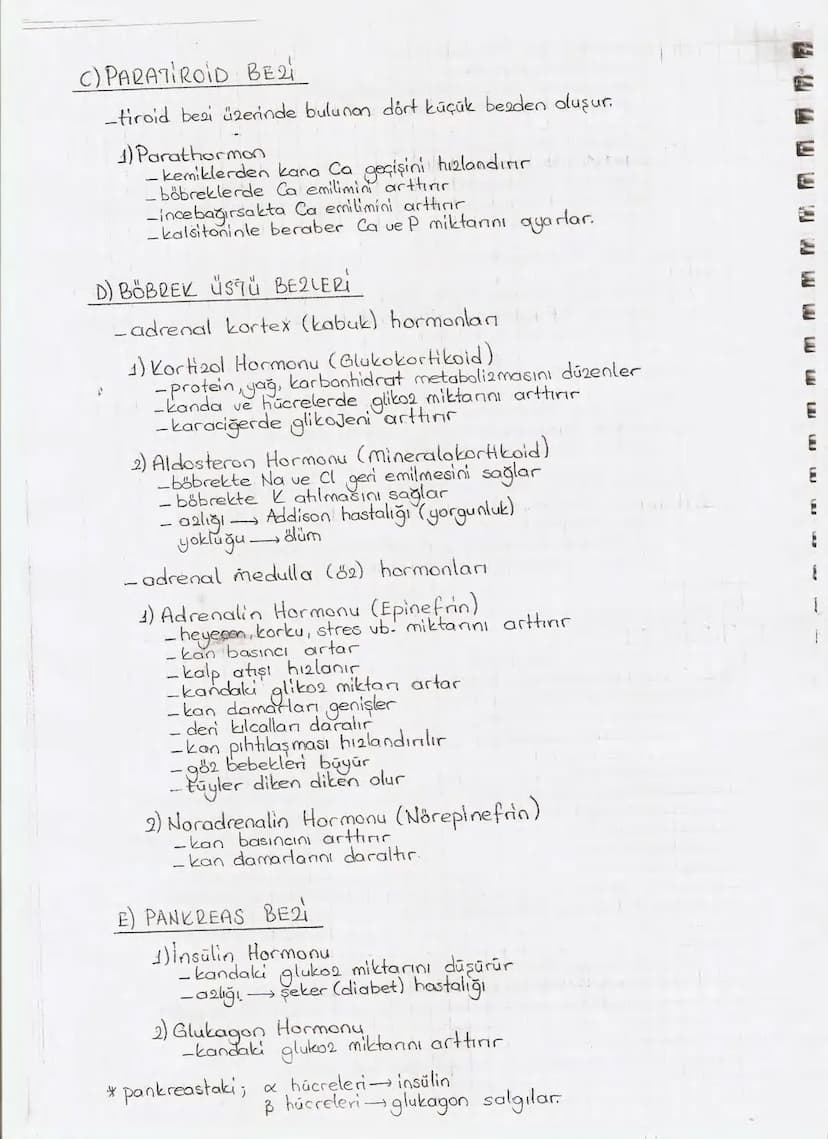 C) PARATİROİD BEZİ
-tiroid bezi üzerinde bulunan dört küçük bezden oluşur.
1) Parathormon
- kemiklerden kana Ca geçişini hızlandırır
- böbreklerde Ca emilimini arttırır
- incebağırsakta Ca emilimini arttırır
- kalsitoninle beraber Ca ve P miktarını ayarlar.
D) BÖBREK ÜSTÜ BEZLERİ
- adrenal kortex (kabuk) hormonları
1) Kortizol Hormonu (Glukokortikoid)
- protein, yağ, karbonhidrat metabolizmasını düzenler
- kanda ve hücrelerde glikoz miktarını arttırır
- karaciğerde glikojeni arttırır
2) Aldosteron Hormonu (Mineralokortikoid)
- böbrekte Na ve Cl geri emilmesini sağlar
- böbrekte K atılmasını sağlar
- azlığı → Addison hastalığı (yorgunluk)
yokluğu → ölüm
- adrenal medulla (öz) hormonları
1) Adrenalin Hormonu (Epinefrin)
- heyecan, korku, stres vb. miktarını arttırır
- kan basıncı artar
- kalp atışı hızlanır
- kandaki glikoz miktarı artar
- kan damarları genişler
- deri kılcalları daralır
- kan pıhtılaşması hızlandırılır
- göz bebekleri büyür
- tüyler diken diken olur
2) Noradrenalin Hormonu (Nörepinefrin)
- kan basıncını arttırır
- kan damarlarını daraltır.
E) PANKREAS BEZİ
1) İnsülin Hormonu
- kandaki glukoz miktarını düşürür
- azlığı → şeker (diabet) hastalığı
2) Glukagon Hormonu
- kandaki glukoz miktarını arttırır
* pankreastaki; α hücreleri → insülin
β hücreleri → glukagon salgılar.